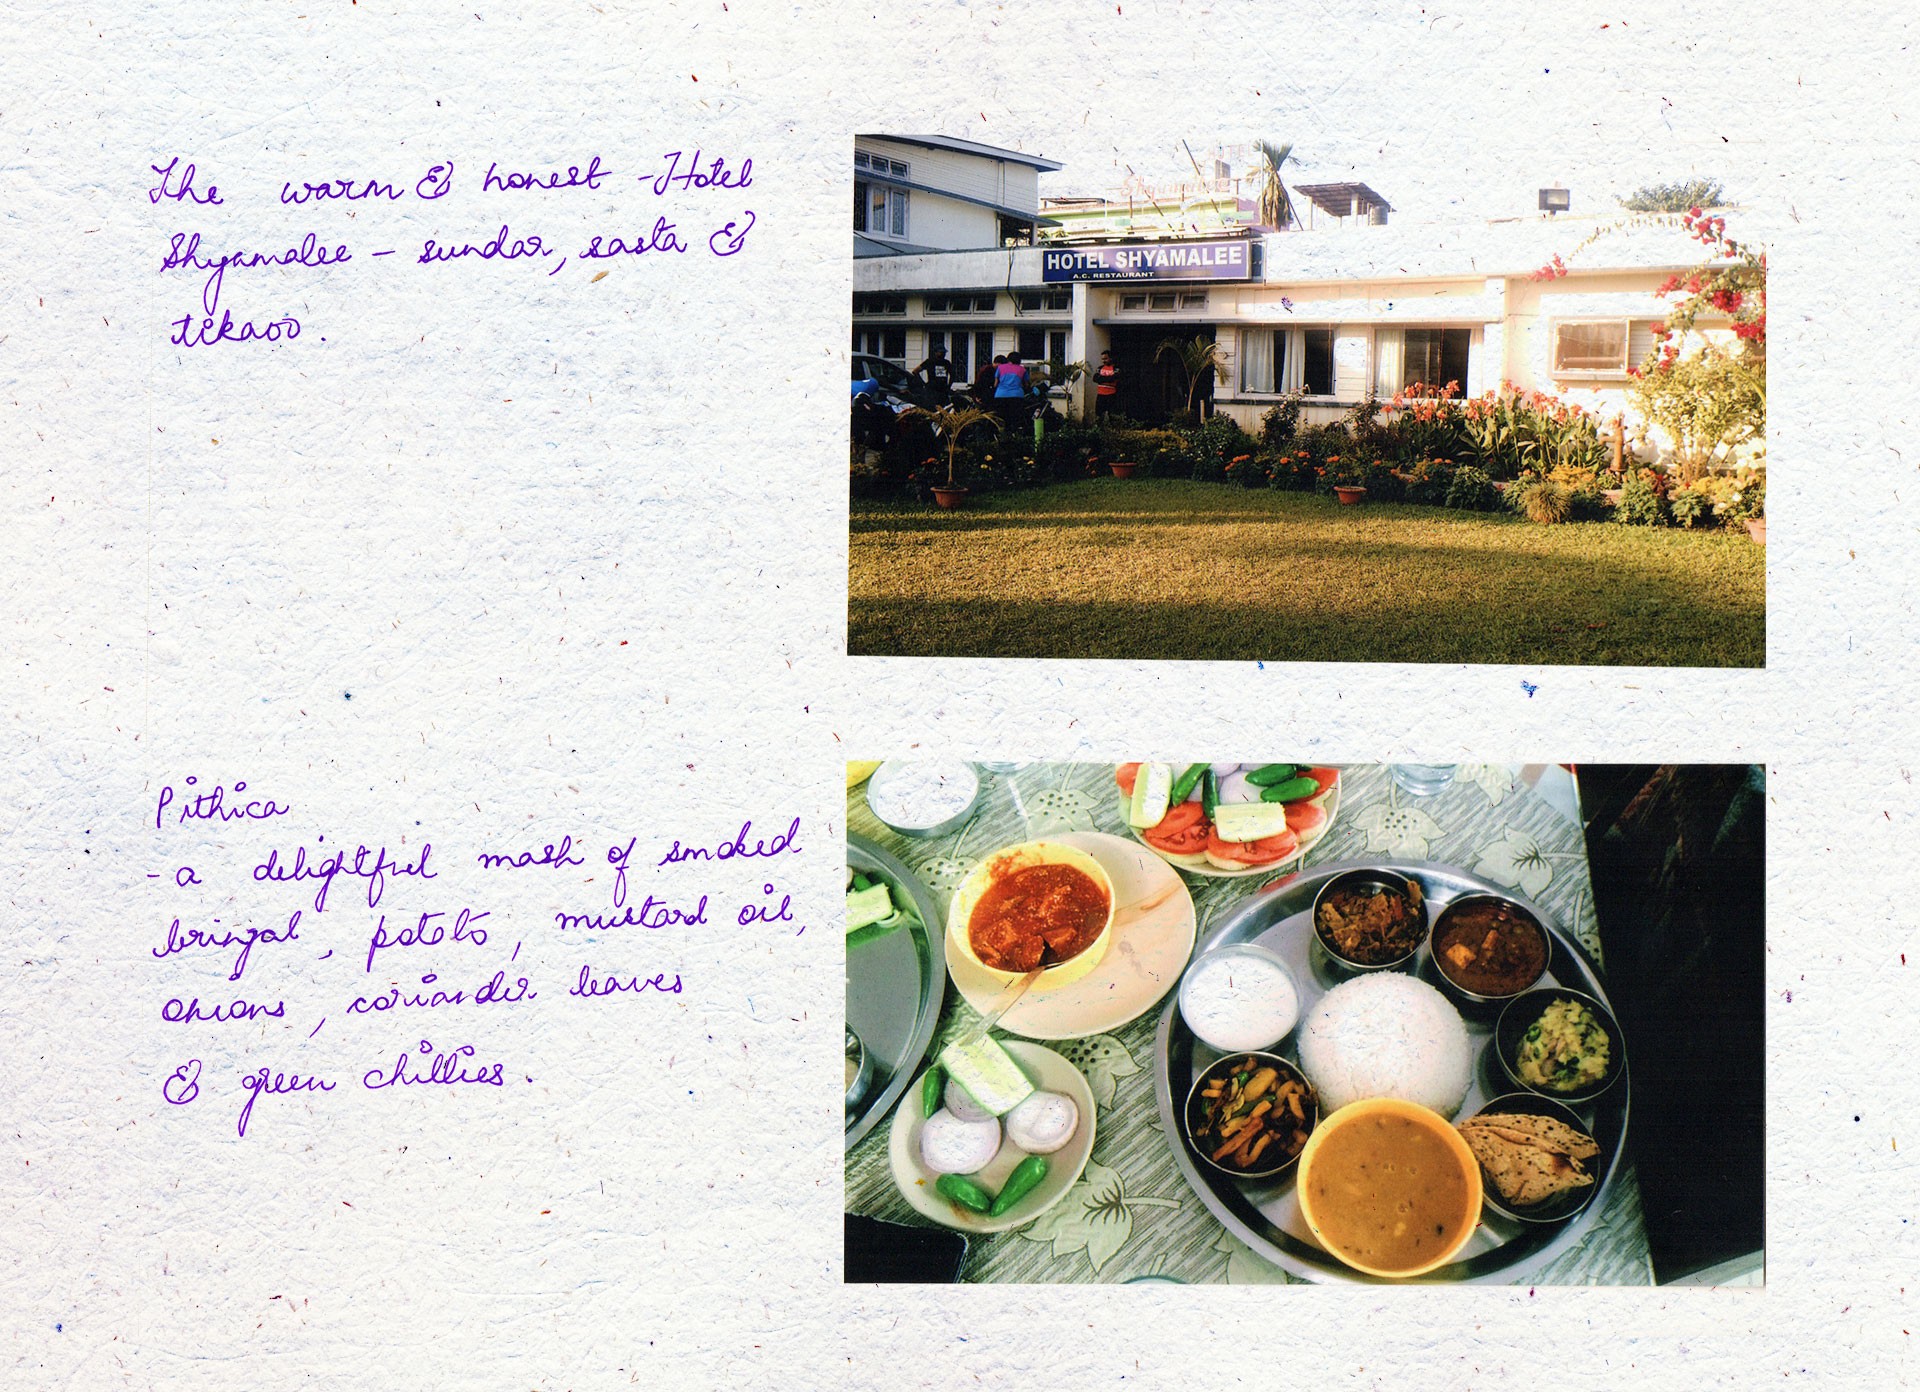 The warm & honest - Hotel
Shyamalee - sundar, sasta &
tikaoo.
Shyamalee
HOTEL SHYAMALEE
A.C. RESTAURANT
Pithica
- a delightful mash of smoked
brinjal, potato, mustard oil,
onions, coriander leaves
& green chillies.